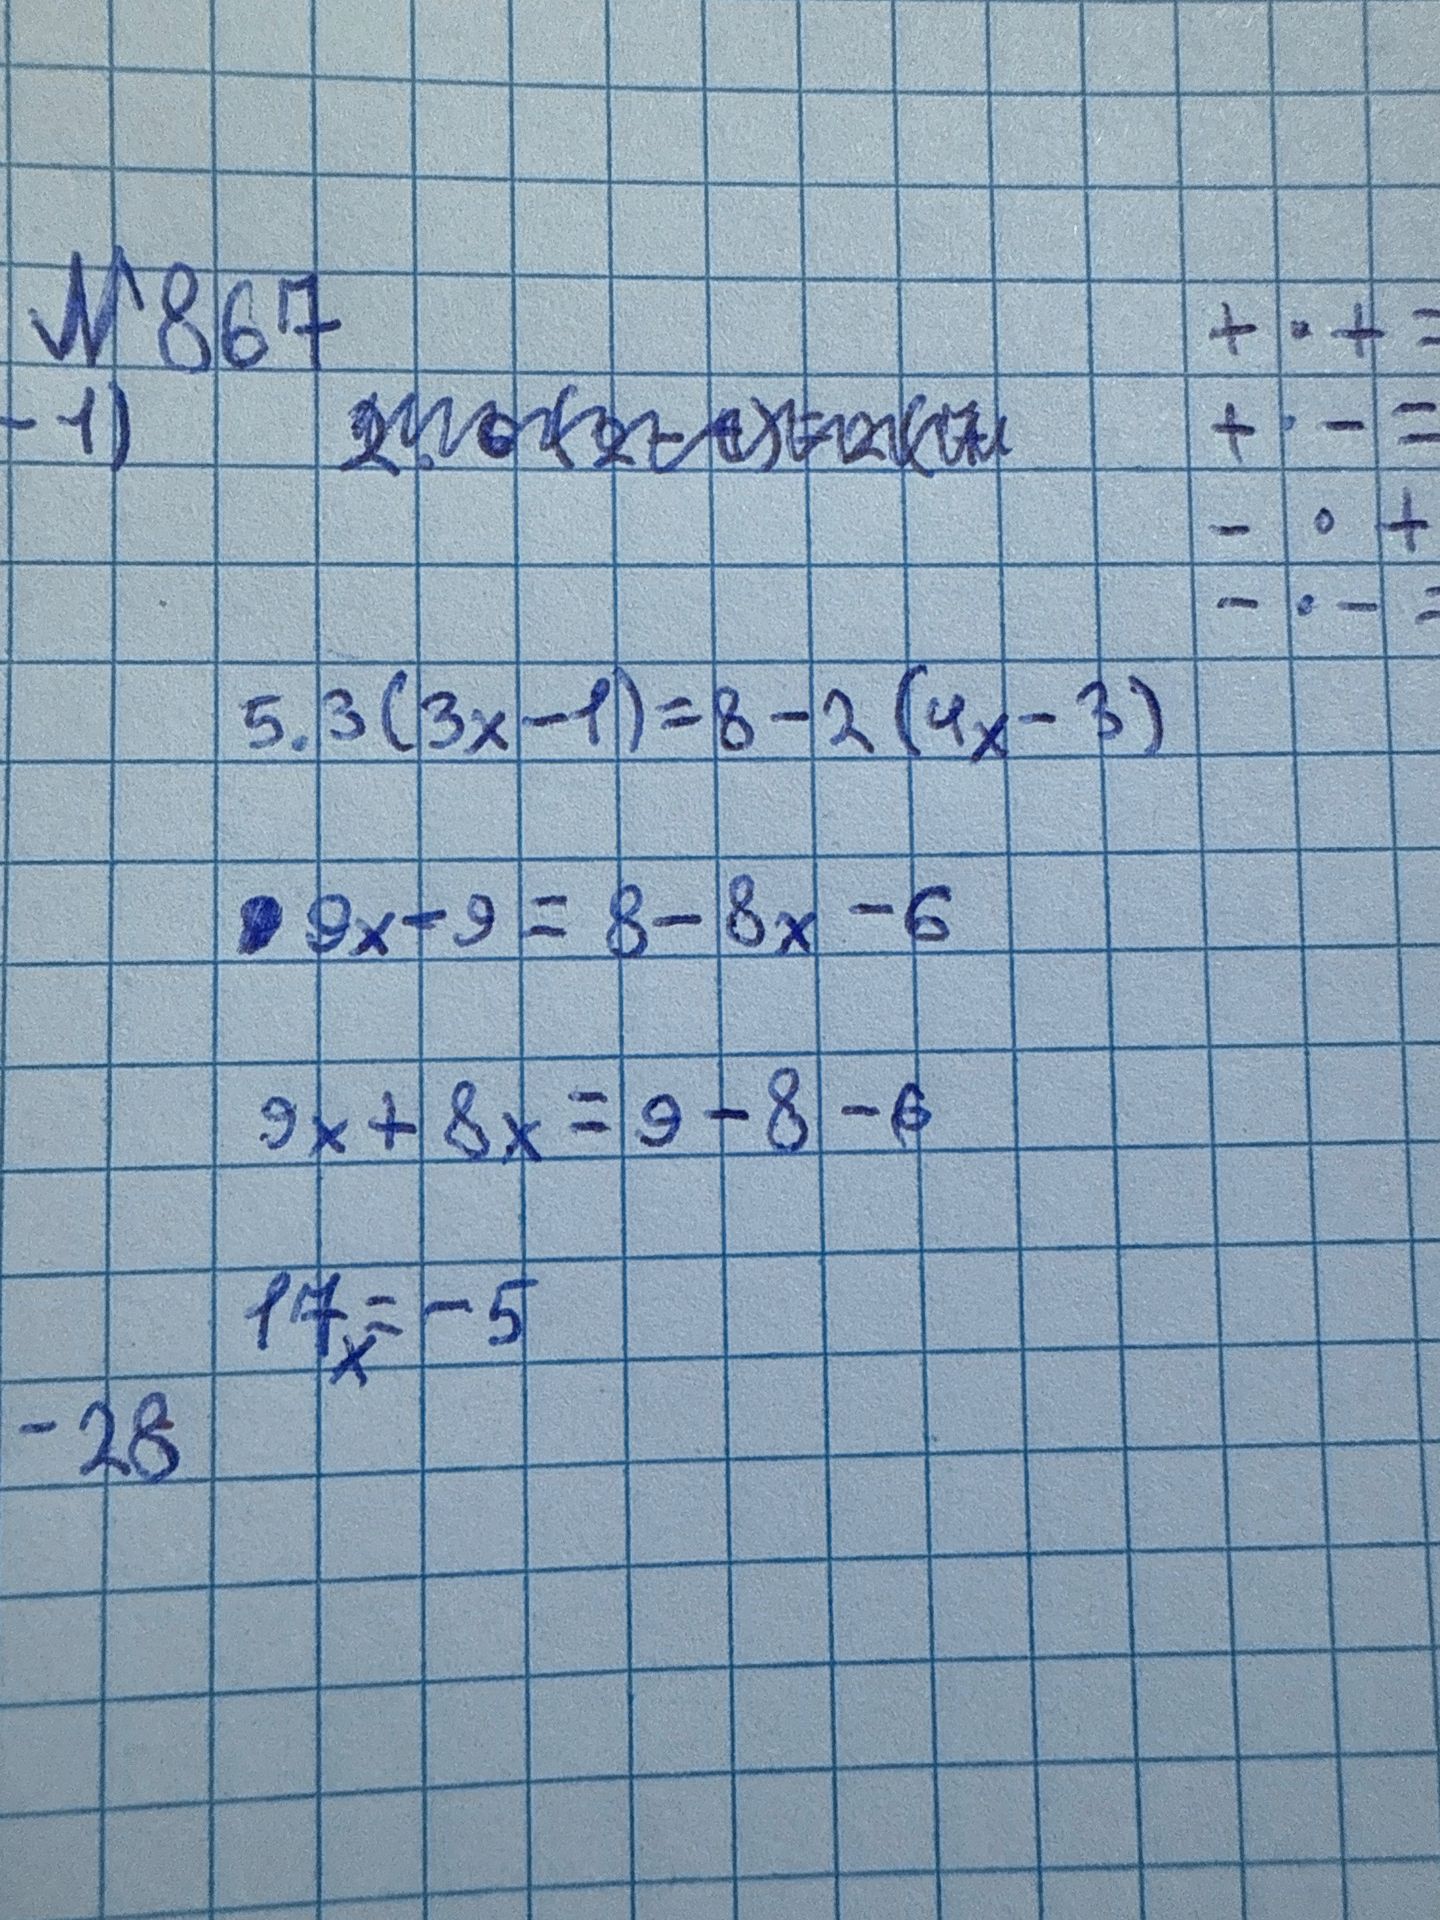 №867
-1)
+ · + =
+ · - =
- · +
- · - =
5. 3(3x-1)=8-2(4x-3)
9x-9=8-8x-6
9x+8x=9-8-6
17x=-5
-28